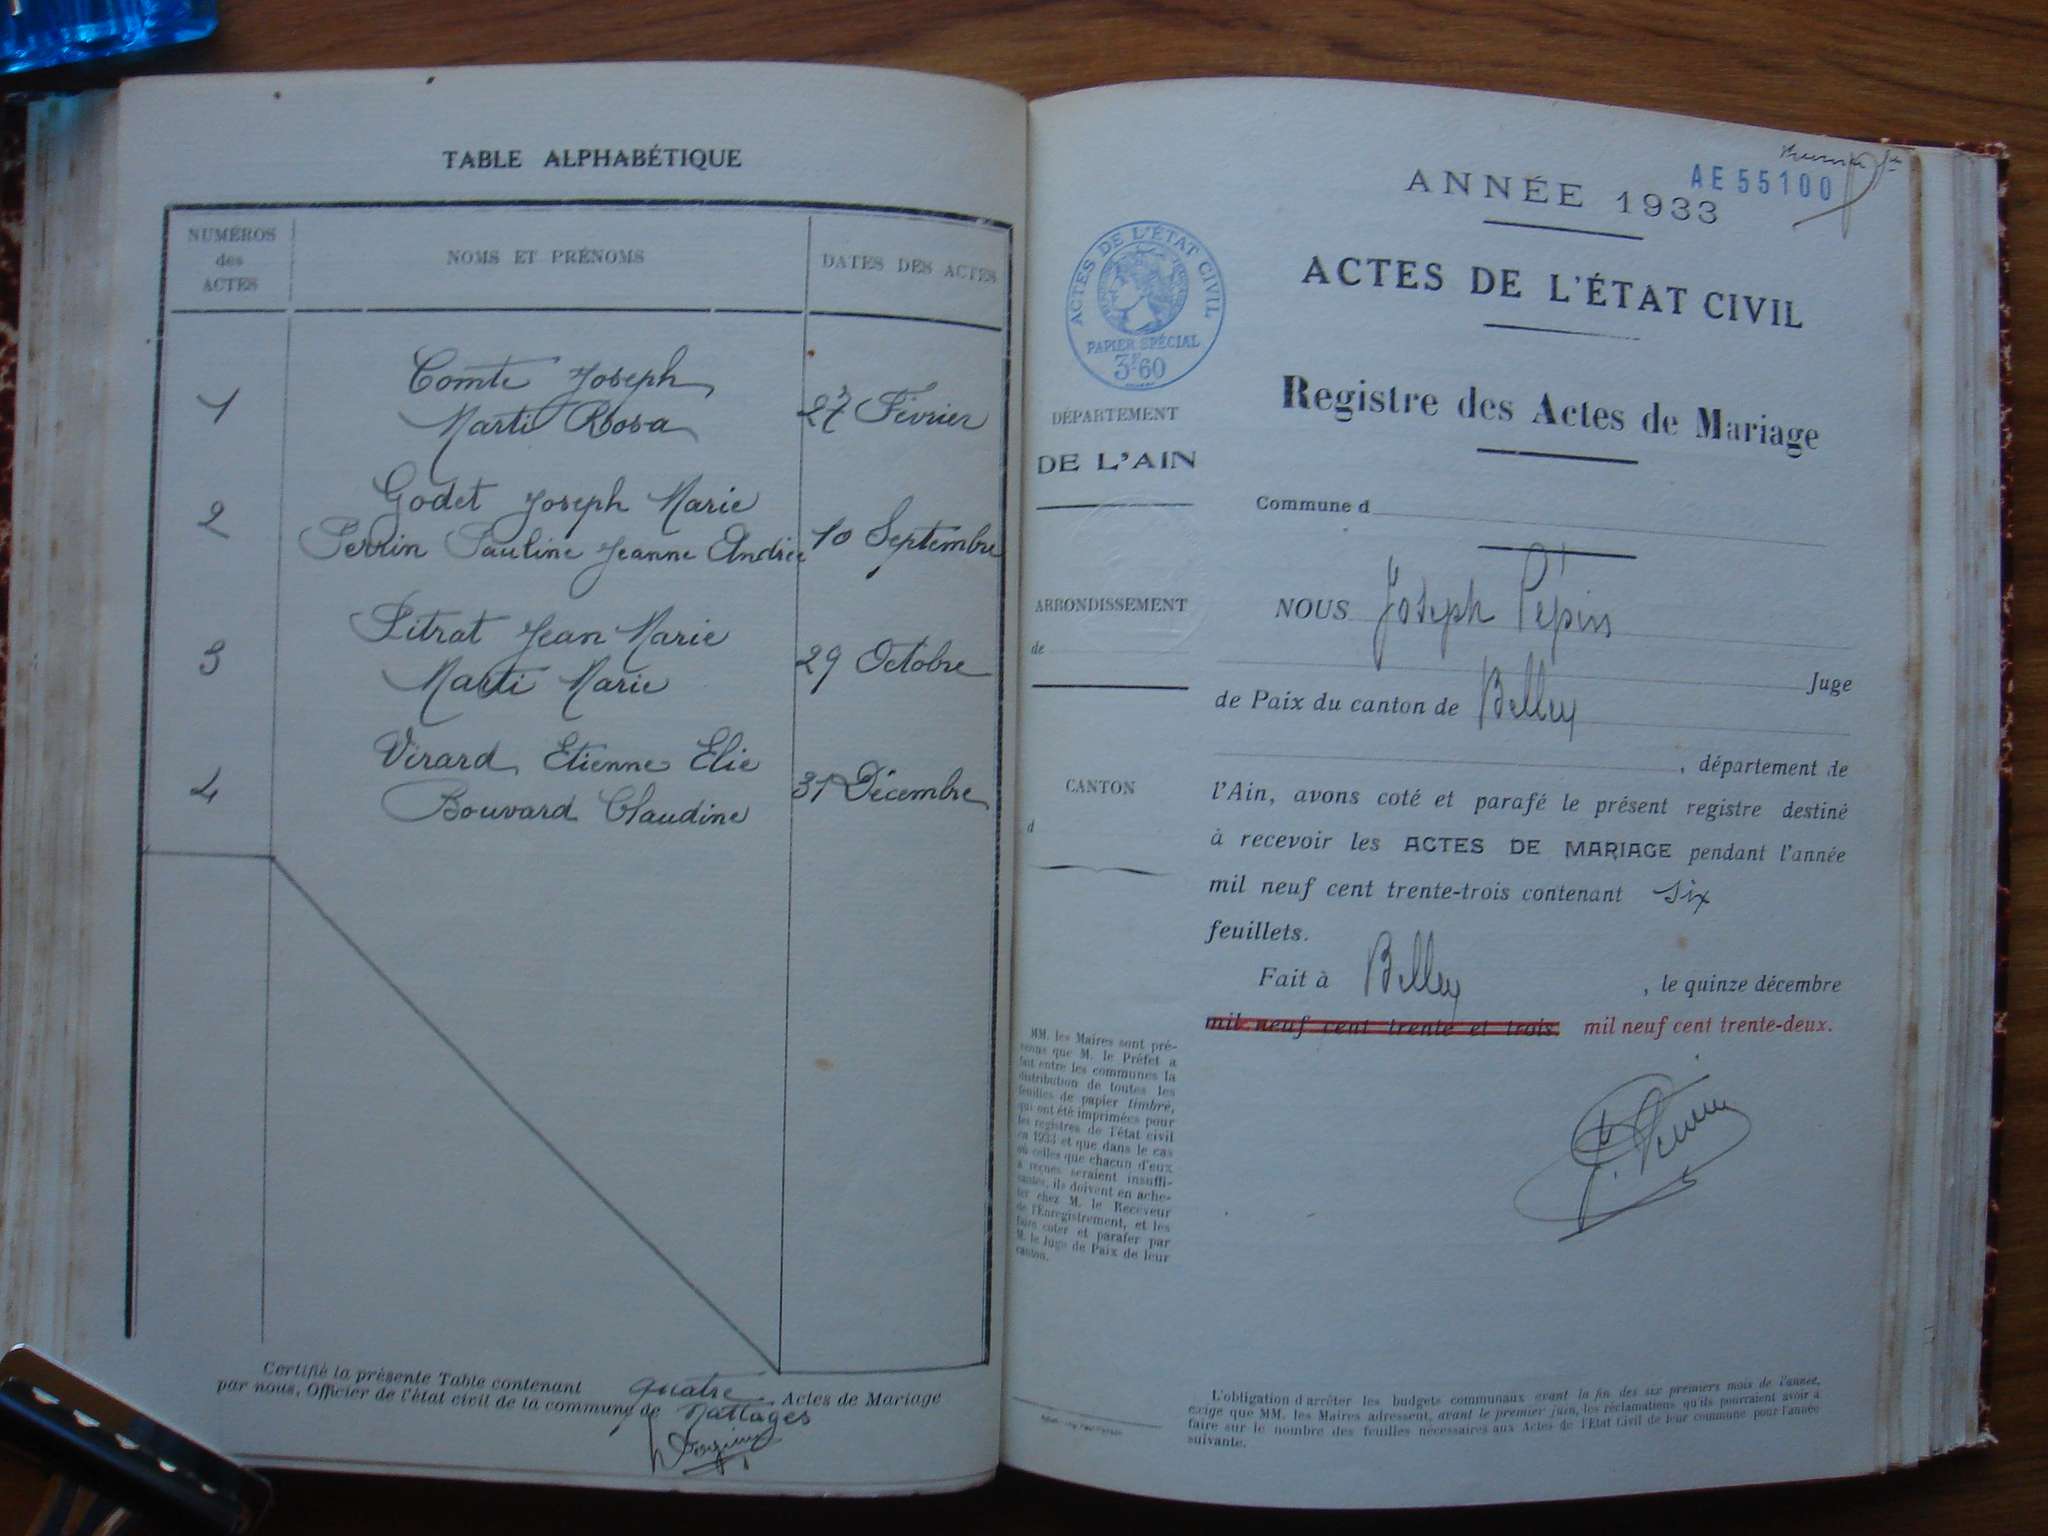 TABLE ALPHABÉTIQUE
NUMÉROS
des
ACTES
NOMS ET PRÉNOMS
DATES DES ACTES
1
Comte Joseph
Marti Rosa
27 Février
2
Godet Joseph Marie
Perrin Pauline Jeanne Andrée
10 Septembre
3
Pitrat Jean Marie
Marti Marie
29 Octobre
4
Virard Etienne Elie
Bouvard Claudine
31 Décembre
Certifié la présente Table contenant quatre Actes de Mariage
par nous, Officier de l'état civil de la commune de Nattages
AE 55100
ANNÉE 1933
ACTES DE L'ÉTAT CIVIL
ACTES DE L'ÉTAT CIVIL
PAPIER SPÉCIAL
3F60
Registre des Actes de Mariage
DÉPARTEMENT
DE L'AIN
Commune d
ARRONDISSEMENT
de
CANTON
d
NOUS Joseph Pépin
Juge
de Paix du canton de Belley
, département de
l'Ain, avons coté et parafé le présent registre destiné
à recevoir les ACTES DE MARIAGE pendant l'année
mil neuf cent trente-trois contenant six
feuillets.
Fait à Belley , le quinze décembre
mil neuf cent trente et trois mil neuf cent trente-deux.
MM. les Maires sont pré-
venus que M. le Préfet a
fait entre les communes la
distribution de toutes les
feuilles de papier timbré,
qui ont été imprimées pour
les registres de l'état civil
en 1933 et que dans le cas
où celles que chacun d'eux
a reçues seraient insuffi-
santes, ils doivent en ache-
ter chez M. le Receveur
de l'Enregistrement, et les
faire coter et parafer par
M. le Juge de Paix de leur
canton.
L'obligation d'arrêter les budgets communaux avant la fin des six premiers mois de l'année,
exige que MM. les Maires adressent, avant le premier juin, les réclamations qu'ils pourraient avoir à
faire sur le nombre des feuilles nécessaires aux Actes de l'Etat Civil de leur commune pour l'année
suivante.